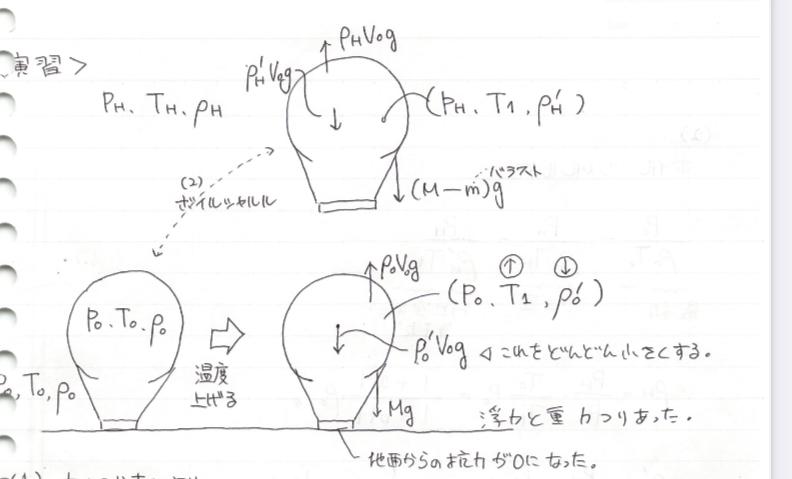 演習>
P_H、T_H、ρ_H
ρ_H V₀g
ρ_H' V₀g
(P_H、T₁、ρ_H')
バラスト
(M-m)g
(2)
ボイルシャルル
P₀、T₀、ρ₀
P₀、T₀、ρ₀
温度
上げる
ρ₀V₀g
↑ ↓
(P₀、T₁、ρ₀')
ρ₀'V₀g ◁ これをどんどん小さくする。
Mg
浮力と重力つりあった。
地面からの抗力が0になった。